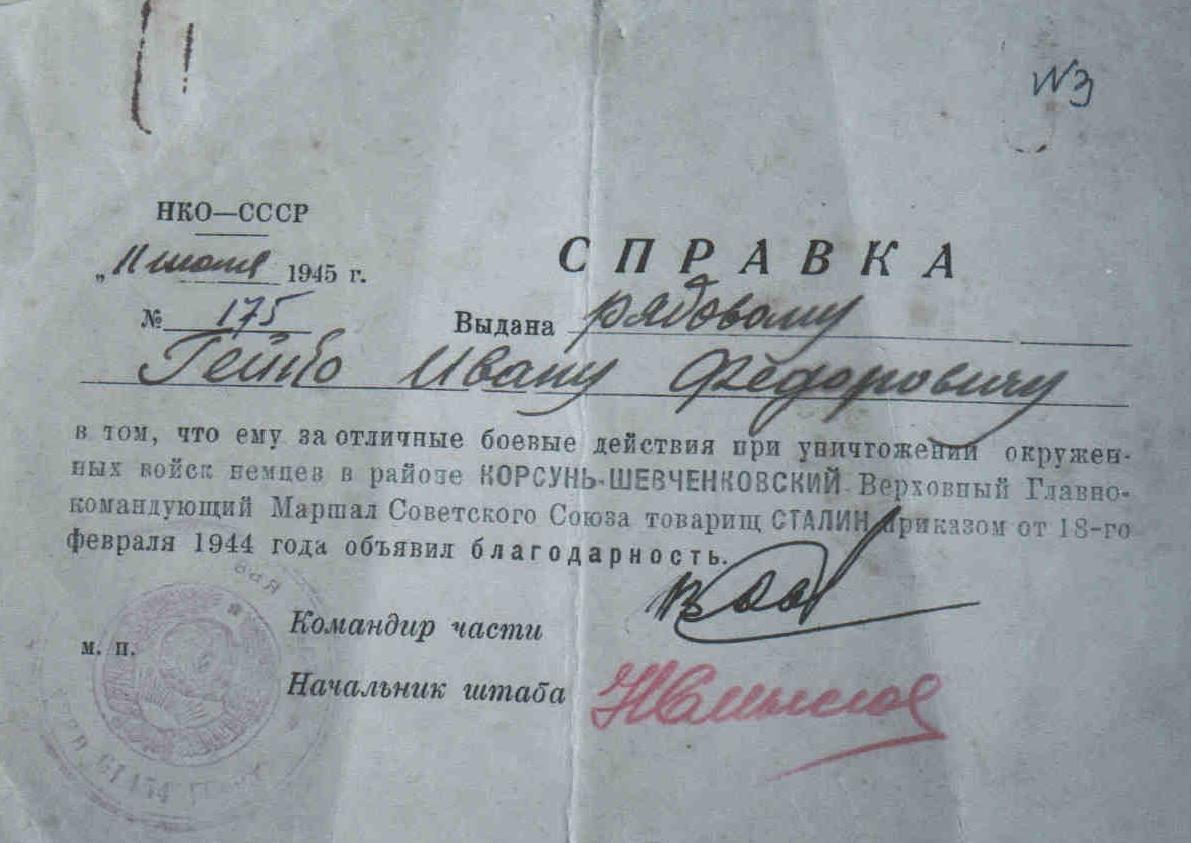 N3
НКО—СССР
„11 июля 1945 г.
СПРАВКА
№ 175
Выдана рядовому
Гейко Ивану Фёдоровичу
в том, что ему за отличные боевые действия при уничтожении окружен-
ных войск немцев в районе КОРСУНЬ-ШЕВЧЕНКОВСКИЙ Верховный Главно-
командующий Маршал Советского Союза товарищ СТАЛИН приказом от 18-го
февраля 1944 года объявил благодарность.
Командир части
м. п.
Начальник штаба